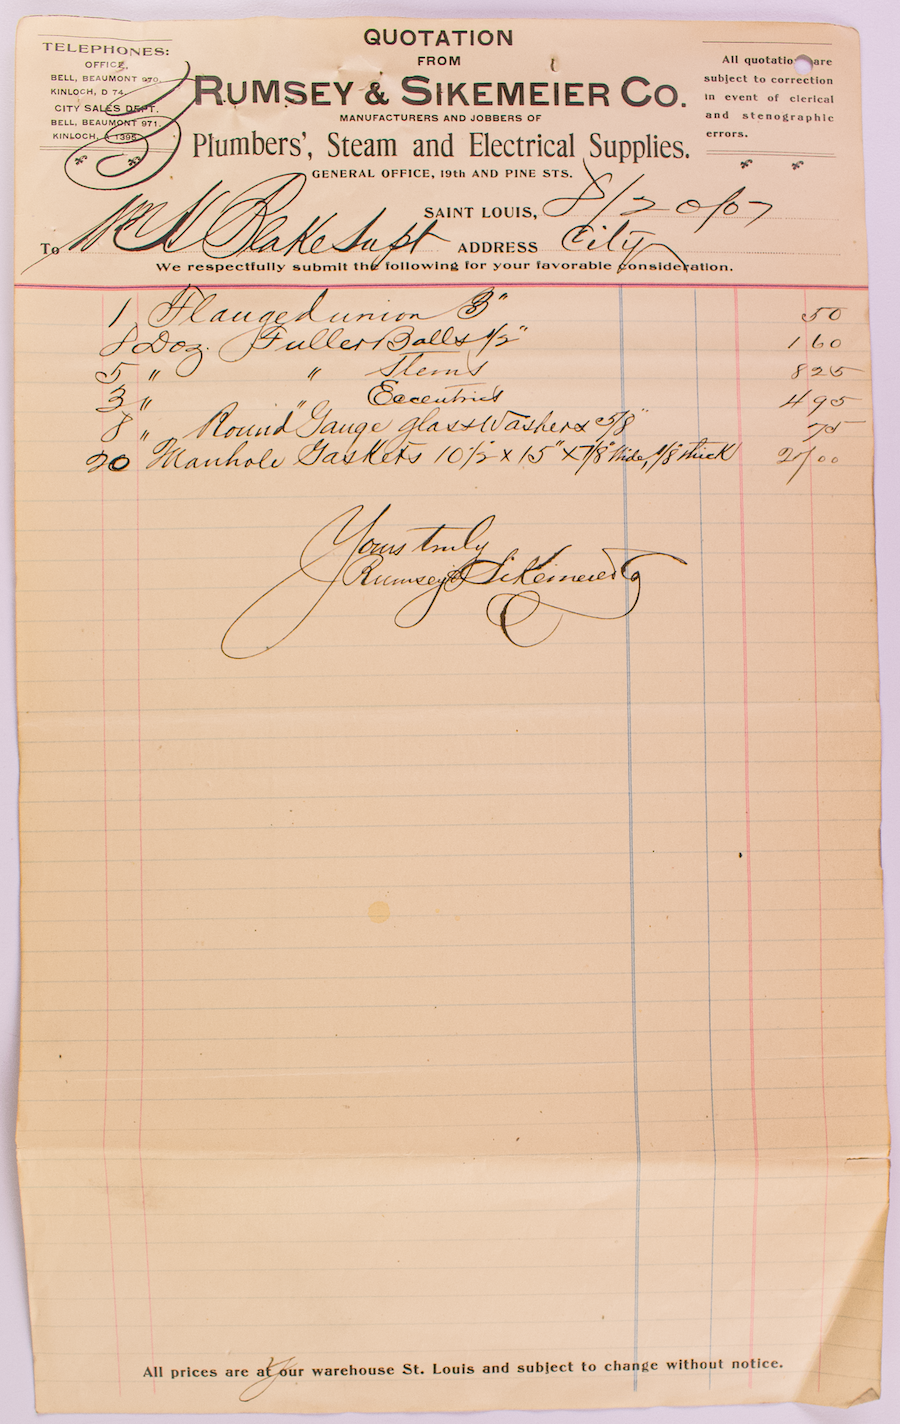 QUOTATION
FROM
RUMSEY & SIKEMEIER CO.
MANUFACTURERS AND JOBBERS OF
Plumbers', Steam and Electrical Supplies.
GENERAL OFFICE, 19th AND PINE STS.
TELEPHONES:
OFFICE,
BELL, BEAUMONT 970.
KINLOCH, D 74.
CITY SALES DEPT.
BELL, BEAUMONT 971.
KINLOCH, A 1395.
All quotations are
subject to correction
in event of clerical
and stenographic
errors.
SAINT LOUIS, 8/20/07
To Wm K Blake Supt ADDRESS City
We respectfully submit the following for your favorable consideration.
1 Flanged union 3" 50
8 Doz. Fuller Balls 1/2" 1 60
5 " " Stems 8 25
3 " " Eccentrics 4 95
8 " Round Gauge glass Washers 5/8" 75
20 Manhole Gaskets 10 1/2 x 15" x 7/8" Wide, 1/8" thick 00
Yours truly
Rumsey & Sikemeier Co
All prices are at our warehouse St. Louis and subject to change without notice.